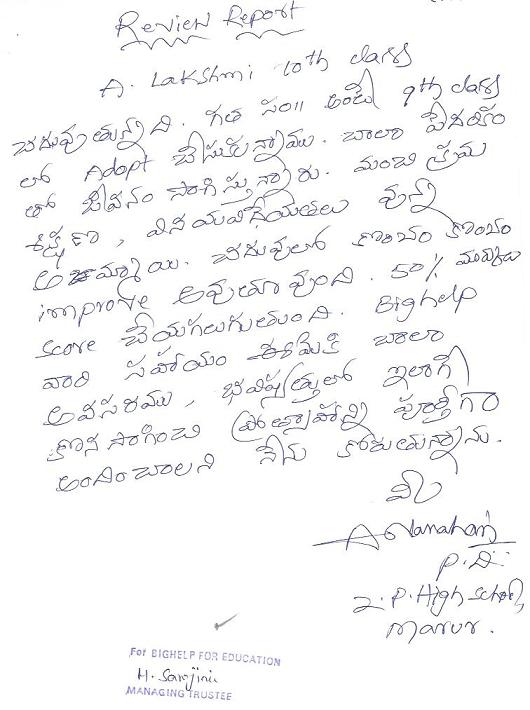 Review Report
A. Lakshmi 10th class
చదువుతున్నది. గత సం॥ అంటే 9th class
లో Adopt చేసుకున్నాము. చాలా పేదరికం
తో జీవనం సాగిస్తున్నారు. మంచి క్రమ
శిక్షణా, వినయవిధేయతలు వున్న
అమ్మాయి. చదువులో కొంచం కొంచం
improve అవుతూ వుంది. 50% మార్కులు
score చేయగలుగుతుంది. Bighelp
వారి సహాయం ఈమెకి చాలా
అవసరము, భవిష్యత్తులో ఇలాగే
కొనసాగించి ప్రోత్సాహాన్ని పూర్తిగా
అందించాలని నేను కోరుతున్నాను.
P.D.
Z.P. High School,
Marur.
For BIGHELP FOR EDUCATION
H. Sarojini
MANAGING TRUSTEE